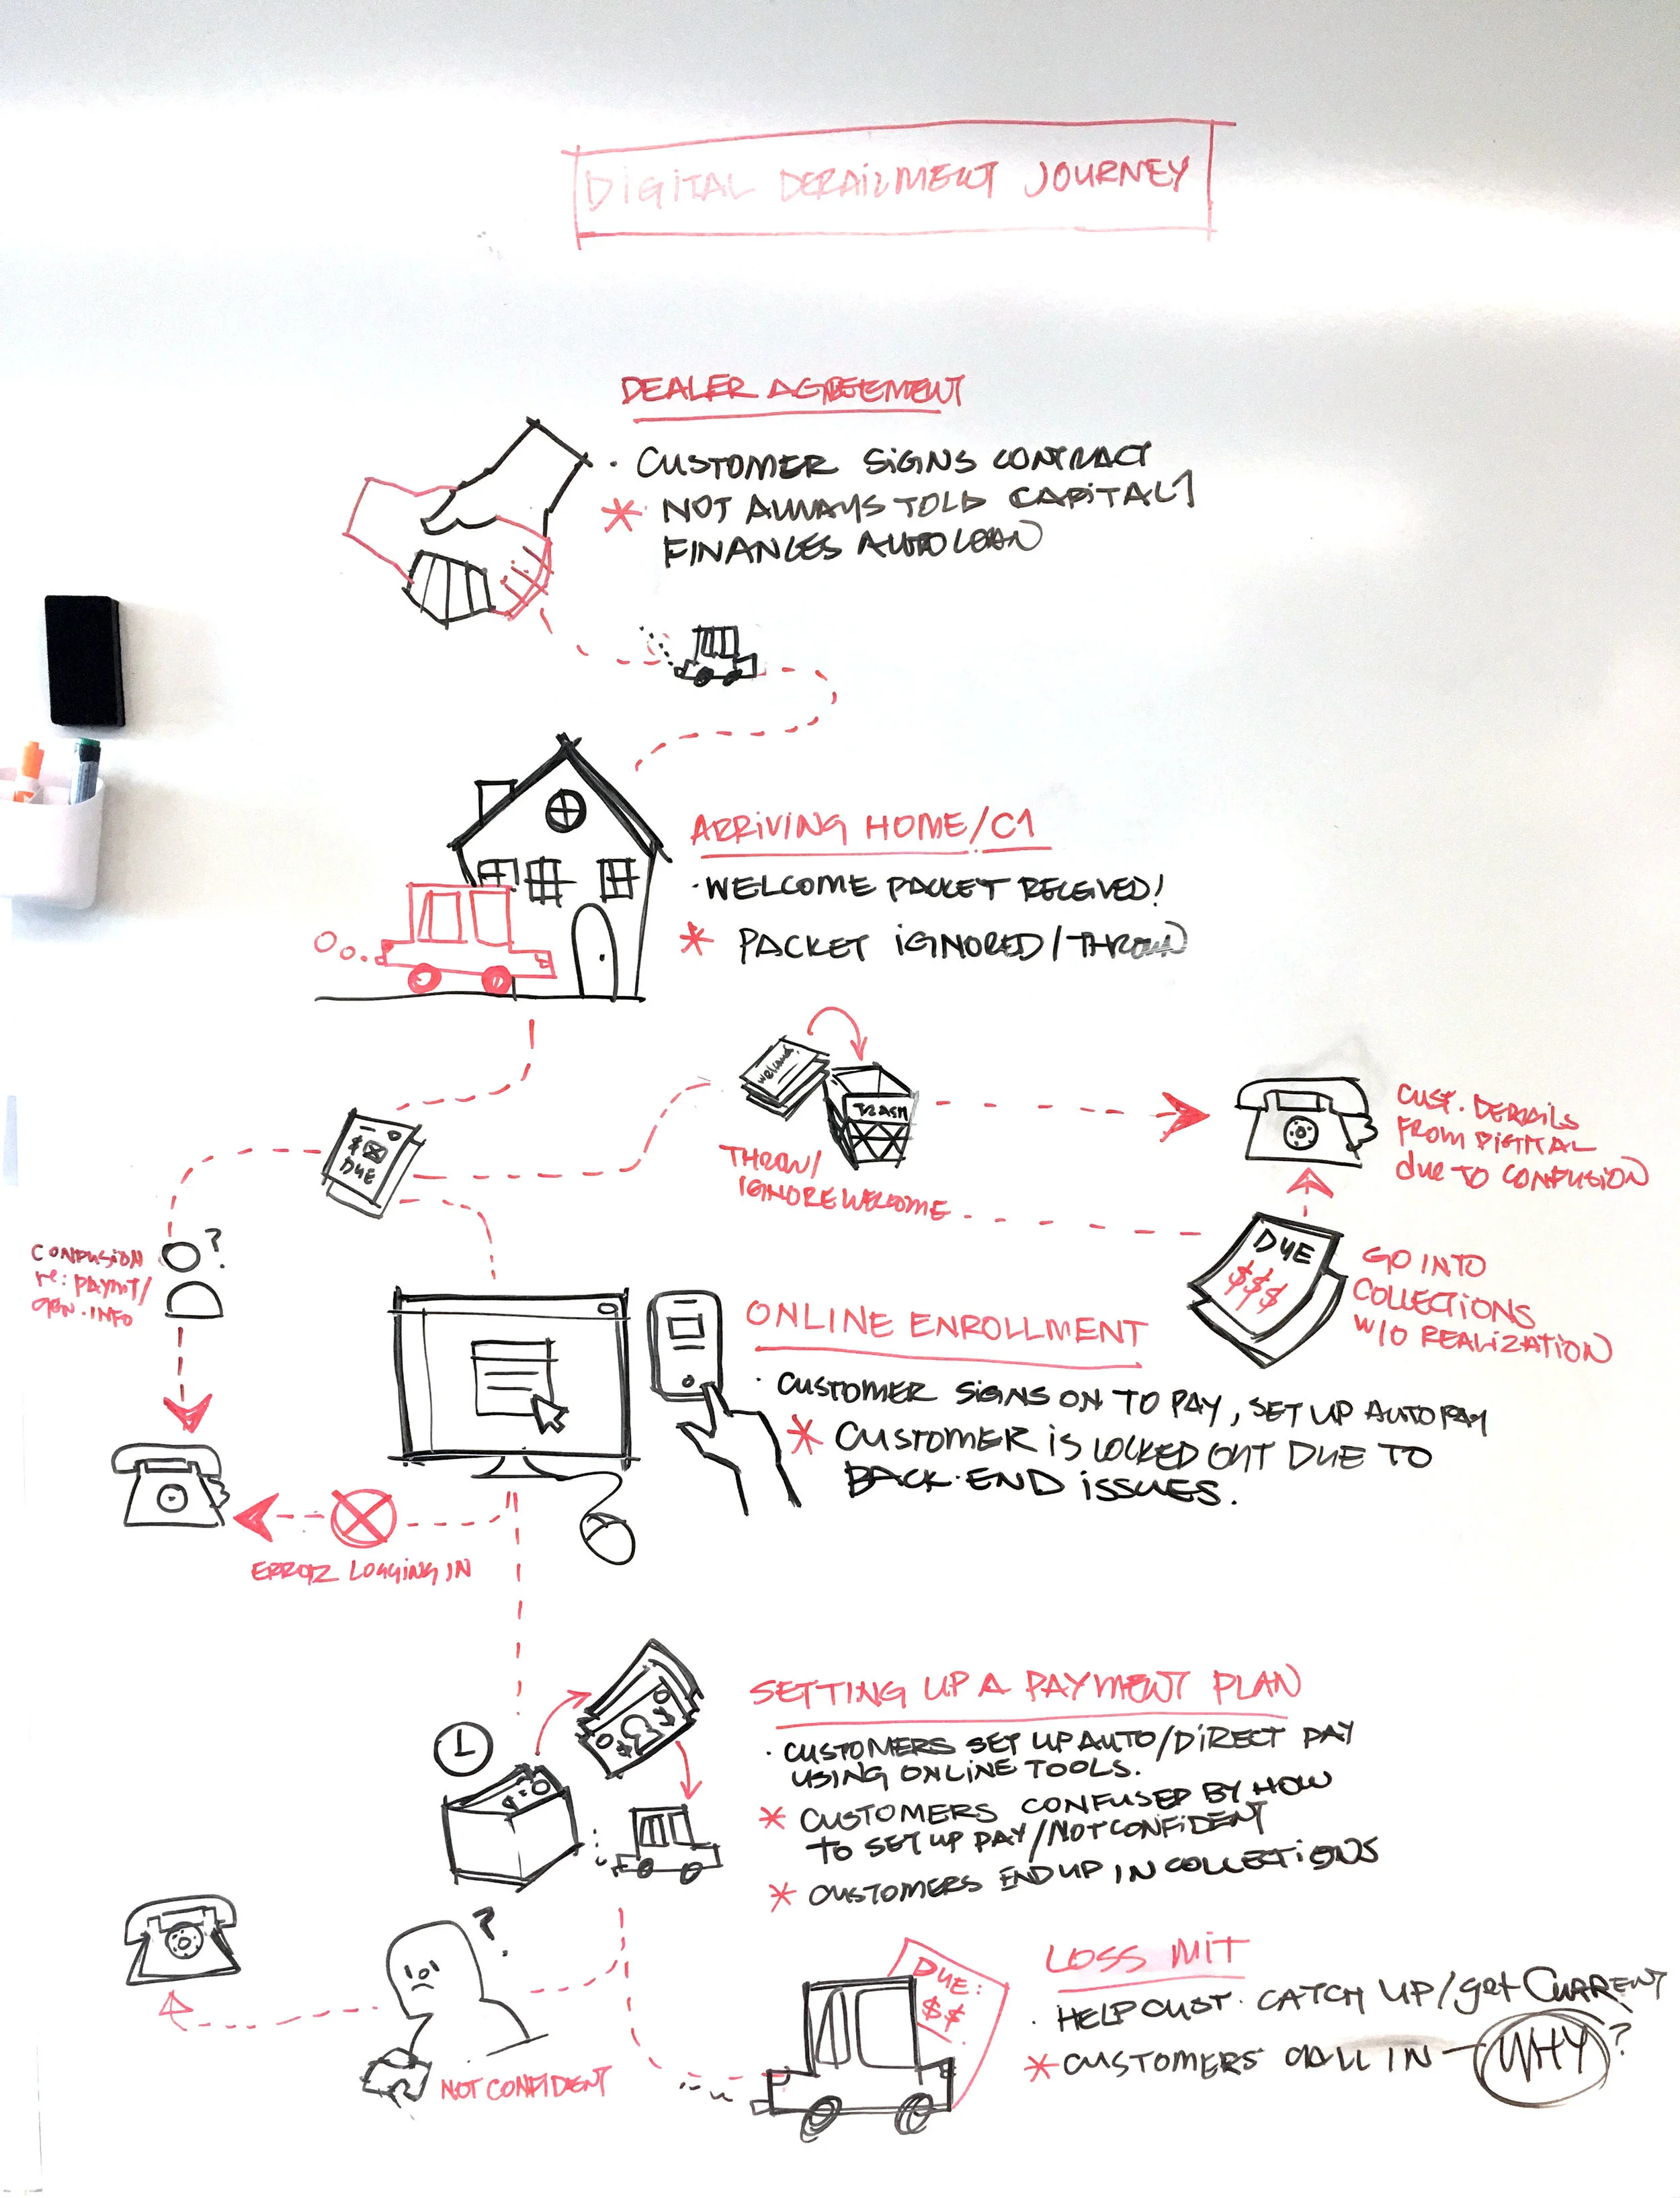 DIGITAL DERAILMENT JOURNEY
DEALER AGREEMENT
· CUSTOMER SIGNS CONTRACT
* NOT ALWAYS TOLD CAPITAL 1
FINANCES AUTO LOAN
ARRIVING HOME/C1
· WELCOME PACKET RECEIVED!
* PACKET IGNORED/THROWN
welcome!
TRASH
THROW/
IGNORE WELCOME
CUST. DERAILS
FROM DIGITAL
due TO CONFUSION
$
DUE
?
CONFUSION
re: PAYMT/
GEN. INFO
DUE
$$$
GO INTO
COLLECTIONS
W/O REALIZATION
ONLINE ENROLLMENT
· CUSTOMER SIGNS ON TO PAY, SET UP AUTO PAY
* CUSTOMER IS LOCKED OUT DUE TO
BACK-END ISSUES.
ERROR LOGGING IN
SETTING UP A PAYMENT PLAN
· CUSTOMERS SET UP AUTO/DIRECT PAY
USING ONLINE TOOLS.
* CUSTOMERS CONFUSED BY HOW
TO SET UP PAY/NOT CONFIDENT
* CUSTOMERS END UP IN COLLECTIONS
?
NOT CONFIDENT
DUE:
$$
LOSS MIT
· HELP CUST. CATCH UP/get CURRENT
* CUSTOMERS CALL IN – WHY?